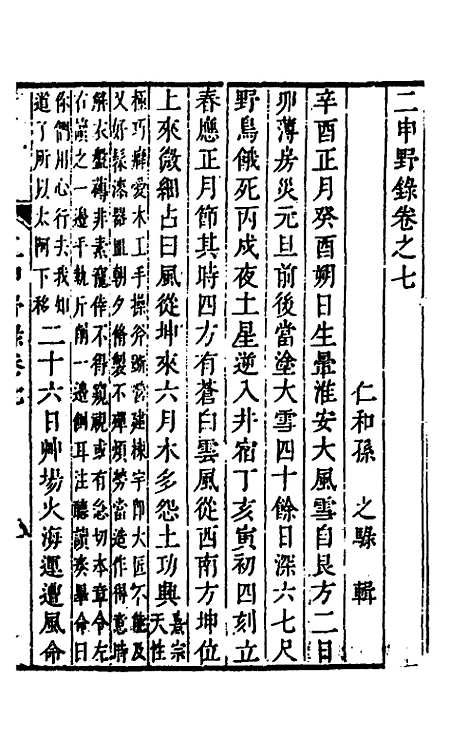 二申野錄卷之七
仁和孫 之騄 輯
辛酉正月癸酉朔日生暈淮安大風雪自艮方二日
卯薄房災元旦前後當塗大雪四十餘日深六七尺
野鳥餓死丙戌夜土星逆入井宿丁亥寅初四刻立
春應正月節其時四方有蒼白雲風從西南方坤位
上來微細占曰風從坤來六月木多怨土功興熹宗天性
極巧癖愛木工手操斧斲營建棟宇即大匠不能及
又好髹漆器皿朝夕脩製不憚煩勞當造作得意時
解衣盤薄非素寵倖不得窺視或有急切本章令左
右讀之一邊平執斤削一邊側耳注聽讀奏畢命曰
你們用心行去我知
道了所以太阿下移二十六日艸場火海運遭風命